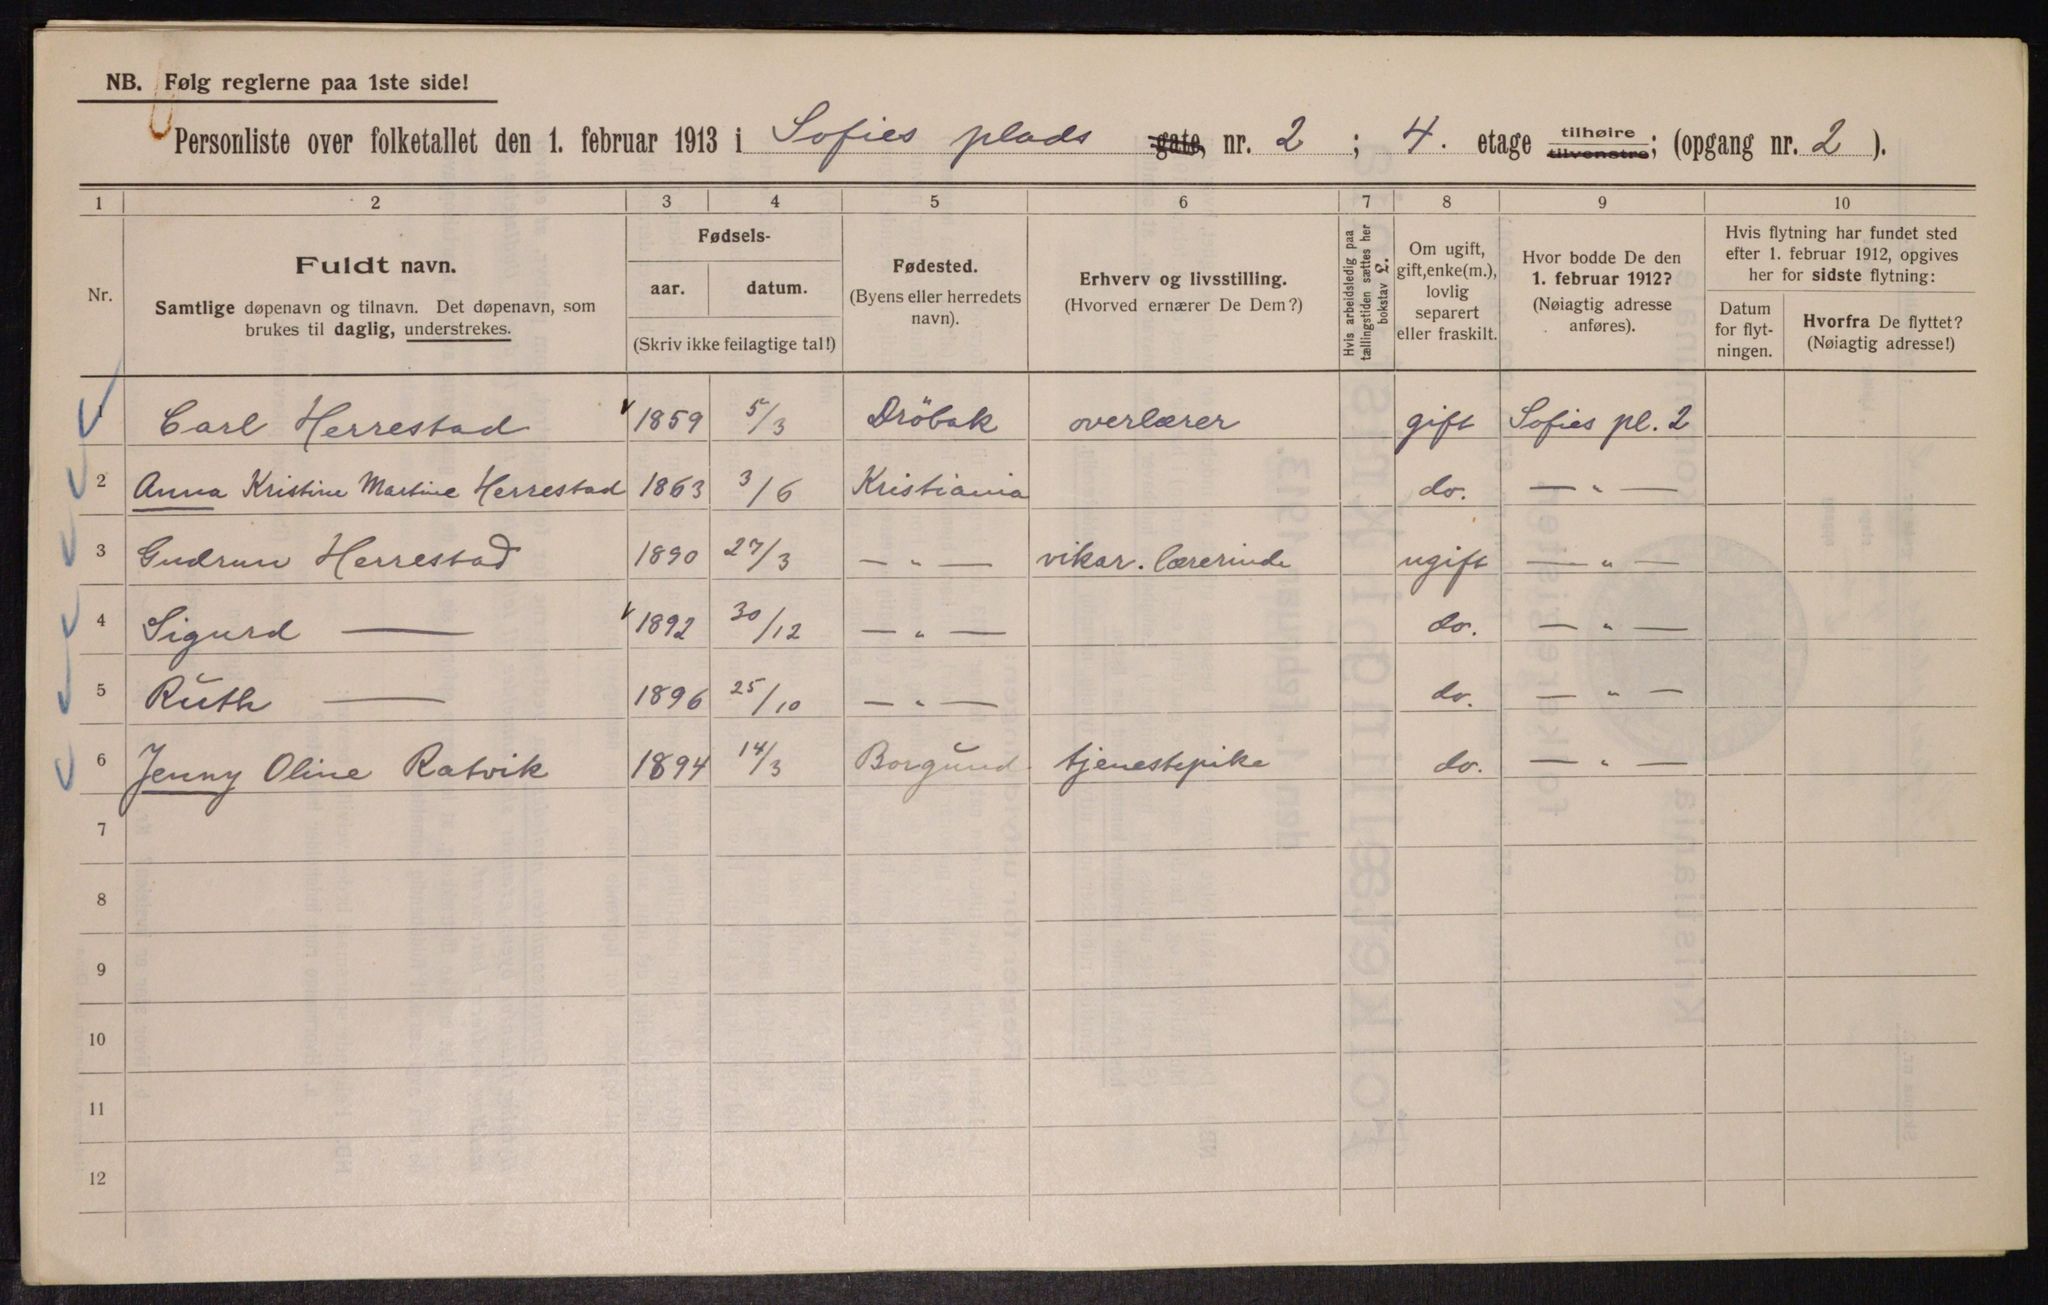 NB. Følg reglerne paa 1ste side!
Personliste over folketallet den 1. februar 1913 i Sofies plads gate, nr. 2 ; 4. etage tilhøire tilvenstre; (opgang nr. 2 ).
1 2 3 4 5 6 7 8 9 10
Nr.
Fuldt navn.
Samtlige døpenavn og tilnavn. Det døpenavn, som
brukes til daglig, understrekes.
Fødsels-
aar. datum.
(Skriv ikke feilagtige tal!)
Fødested.
(Byens eller herredets
navn).
Erhverv og livsstilling.
(Hvorved ernærer De Dem?)
Hvis arbeidsledig paa
tællingstiden sættes her
bokstav £.
Om ugift,
gift, enke(m.),
lovlig
separert
eller fraskilt.
Hvor bodde De den
1. februar 1912?
(Nøiagtig adresse
anføres).
Hvis flytning har fundet sted
efter 1. februar 1912, opgives
her for sidste flytning:
Datum
for flyt-
ningen.
Hvorfra De flyttet?
(Nøiagtig adresse!)
1 Carl Herrestad 1859 5/3 Dröbak overlærer gift Sofies pl. 2
2 Anna Kristine Martine Herrestad 1863 3/6 Kristiania do. — „ —
3 Gudrun Herrestad 1890 27/3 — „ — vikar. lærerinde ugift — „ —
4 Sigurd — 1892 30/12 — „ — do. — „ —
5 Ruth — 1896 25/10 — „ — do. — „ —
6 Jenny Oline Ratvik 1894 14/3 Borgund tjenestepike do. — „ —
7
8
9
10
11
12